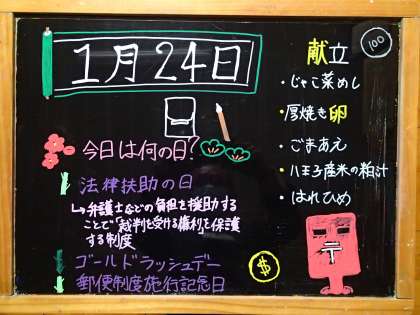 1月24日
今日は何の日?
法律扶助の日
↳弁護士などの負担を援助する
ことで「裁判を受ける権利」を保護
する制度
ゴールドラッシュデー
郵便制度施行記念日
$
献立
100
・じゃこ菜めし
・厚焼き卵
・ごまあえ
・八王子産米の粕汁
・はれひめ
〒